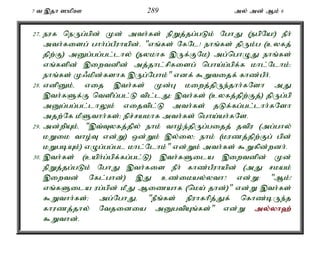 7 வ இதா ஸமிஊ 289 அல் அன் ஆம் 6
27. நரக நெருப்பின் முன் அவர்கள் நிறுத்தப்படும் போது (நபியே!) நீர்
அவர்களைப் பார்ப்பீராயின், "எங்கள் கேடே! நாங்கள் திரும்ப (உலகத்
திற்கு) அனுப்பப்பட்டால் (நலமாக இருக்குமே) அப்பொழுது நாங்கள்
எங்களின் இறைவனின் அத்தாட்சிகளைப் பொய்ப்பிக்க மாட்டோம்;
நாங்கள் முஃமின்களாக இருப்போம்" எனக் கூறுவதைக் காண்பீர்.
28. எனினும், எதை இவர்கள் முன்பு மறைத்திருந்தார்களோ அது
இவர்களுக்கு வெளிப்பட்டு விட்டது; இவர்கள் (உலகத்திற்குத்) திருப்பி
அனுப்பப்பட்டாலும் எதைவிட்டு அவர்கள் தடுக்கப்பட்டார்களோ
அதற்கே மீளுவார்கள்; நிச்சயமாக அவர்கள் பொய்யர்களே.
29. அன்றியும், "இவ்வுலகத்தில் நாம் வாழ்ந்திருப்பதைத் தவிர (அப்பால்
மறுமை வாழ்வு என்று) ஒன்றும் இல்லை; நாம் (மரணத்திற்குப் பின்
மறுபடியும்) எழுப்பப்பட மாட்டோம்" என்றும் அவர்கள் கூறுகின்றனர்.
30. இவர்கள் (உயிர்ப்பிக்கப்பட்டு) இவர்களுடைய இறைவனின் முன்
நிறுத்தப்படும் போது இவர்களை நீர் காண்பீராயின் (அது சமயம்
இறைவன் கேட்பான்) இது உண்மையல்லவா? என்று; "ஆம்!
எங்களுடைய ரப்பின் மீது ஆணையாக (மெய் தான்)" என்று இவர்கள்
கூறுவார்கள்; அப்போது, "நீங்கள் நிராகரித்துக் கொண்டிருந்த
காரணத்தால் வேதனையை அனுபவியுங்கள்" என்று அல்லாஹ்
கூறுவான்.